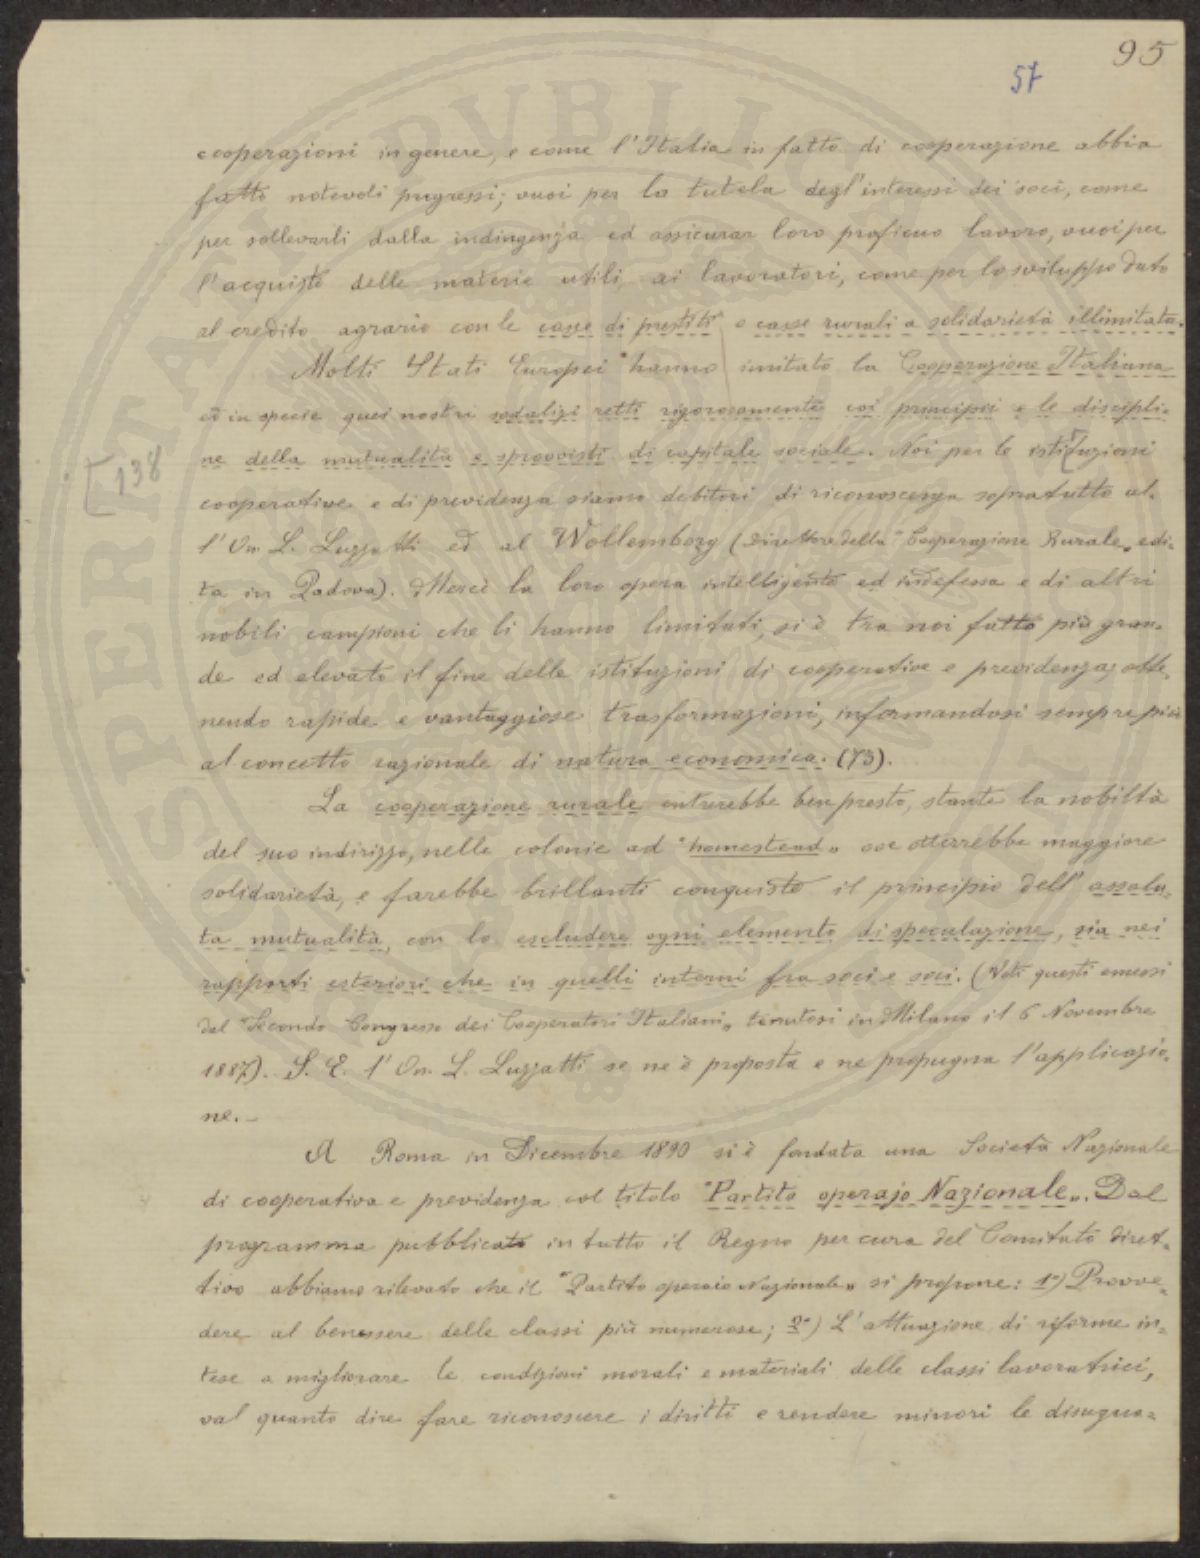 95
57
cooperazioni in genere, e come l'Italia in fatto di cooperazione abbia
fatto notevoli pugressi; vuoi per la tutela degl'interessi dei soci, come
per sollevarli dalla indingenza ed assicurar loro proficuo lavoro, vuoi per
l'acquisto delle materie utili ai lavoratori, come per lo sviluppo dato
al credito agrario con le casse di prestiti e casse rurali a solidarietà illimitata.
Molti Stati Europei hanno imitato la Cooperazione Italiana
ed in specie quei nostri sodalizi retti rigorosamente coi principii e le discipli=
ne della mutualità e sprovvisti di capitale sociale. Noi per le istituzioni
[138
cooperative e di previdenza siamo debitori di riconoscenza sopratutto al=
l'On. L. Luzzatti ed al Wollemborg (Direttore della "Cooperazione Rurale„ edi=
ta in Padova). Mercè la loro opera intelligente ed indefessa e di altri
nobili campioni che li hanno limitati, si è tra noi fatto più gran=
de ed elevato il fine delle istituzioni di cooperative e previdenza; otte=
nendo rapide e vantaggiose trasformazioni, informandosi sempre più
al concetto razionale di natura economica. (73).
La cooperazione rurale entrerebbe ben presto, stante la nobiltà
del suo indirizzo, nelle colonie ad "homestead„ ove otterrebbe maggiore
solidarietà, e farebbe brillanti conquiste il principio dell'assolu=
ta mutualità, con lo escludere ogni elemento di speculazione, sia nei
rapporti esteriori che in quelli interni fra soci e soci. (Voti questi emessi
dal "Secondo Congresso dei Cooperatori Italiani„ tenutosi in Milano il 6 Novembre
1887). S. E. l'On. L. Luzzatti se ne è proposta e ne propugna l'applicazio=
ne.—
A Roma in Dicembre 1890 si è fondata una Società Nazionale
di cooperativa e previdenza col titolo "Partito operajo Nazionale„. Dal
programma pubblicato in tutto il Regno per cura del Comitato diret=
tivo abbiamo rilevato che il "Partito operaio Nazionale„ si propone: 1°) Provve=
dere al benessere delle classi più numerose; 2°) L'attuazione di riforme in=
tese a migliorare le condizioni morali e materiali delle classi lavoratrici,
val quanto dire fare riconoscere i diritti e rendere minori le disugua=